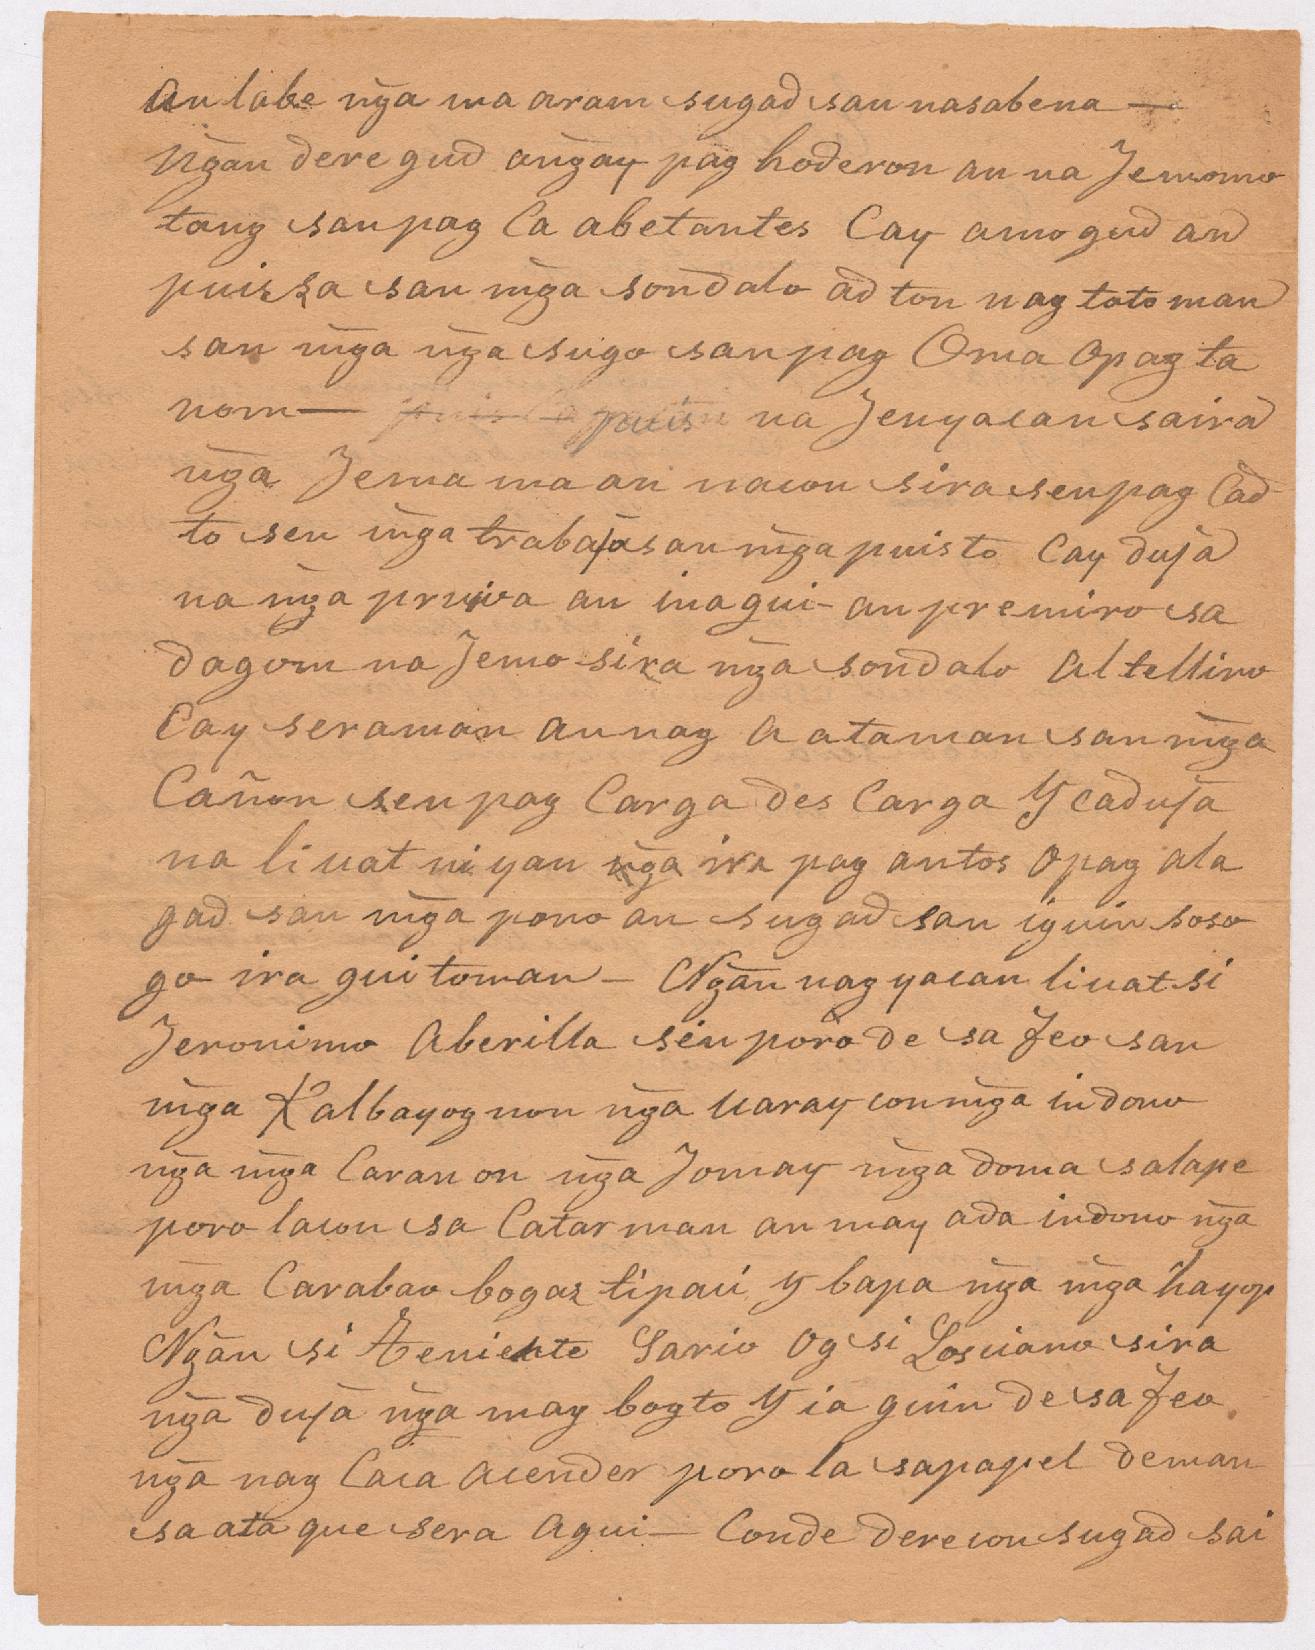 an labe nḡa ma aram sugad san nasabena —
Nḡan dere gud anḡay pag hoderon an na Jemomo
tang san pag Ca abetantes Cay amo gud an
puissa san mḡa sondalo ad ton nag toto man
san mḡa nḡa sugo san pag Oma O pag ta
nom — na Jenyacan saira
nḡa Jema ma an nacon sira sen pag Cad
to sen mḡa trabajo san mḡa puisto Cay duja
na nḡa pruiva an inagui - an premiro sa
dagom na Jemo sira nḡa sondalo Altelliro
Cay seraman an nag A ataman san mḡa
Cañon sen pag Carga des Carga Y caduja
na liuat niyan nḡa ira pag antos O pag ala
gad san mḡa pono an sugad san iguin soso
go ira gui toman — Nḡan nag yacan liuat si
Jeronimo Aberilla sen poro de sa feo san
mḡa Kalbayognon nḡa uaray con mḡa indono
nḡa mḡa Caranon nḡa Jomay mḡa doma salape
poro lacon sa Catarman an may ada indono nḡa
mḡa Carabao bogas tipaú y bapa nḡa mḡa hayop
Nḡan si Teniente Sario Og si Losciano sira
nḡa duja nḡa may bogto Y ia guin de sa feo
nḡa nag Caca acender poro la sapapel deman
sa ata que sera Agui — Conde derecon sugad sai